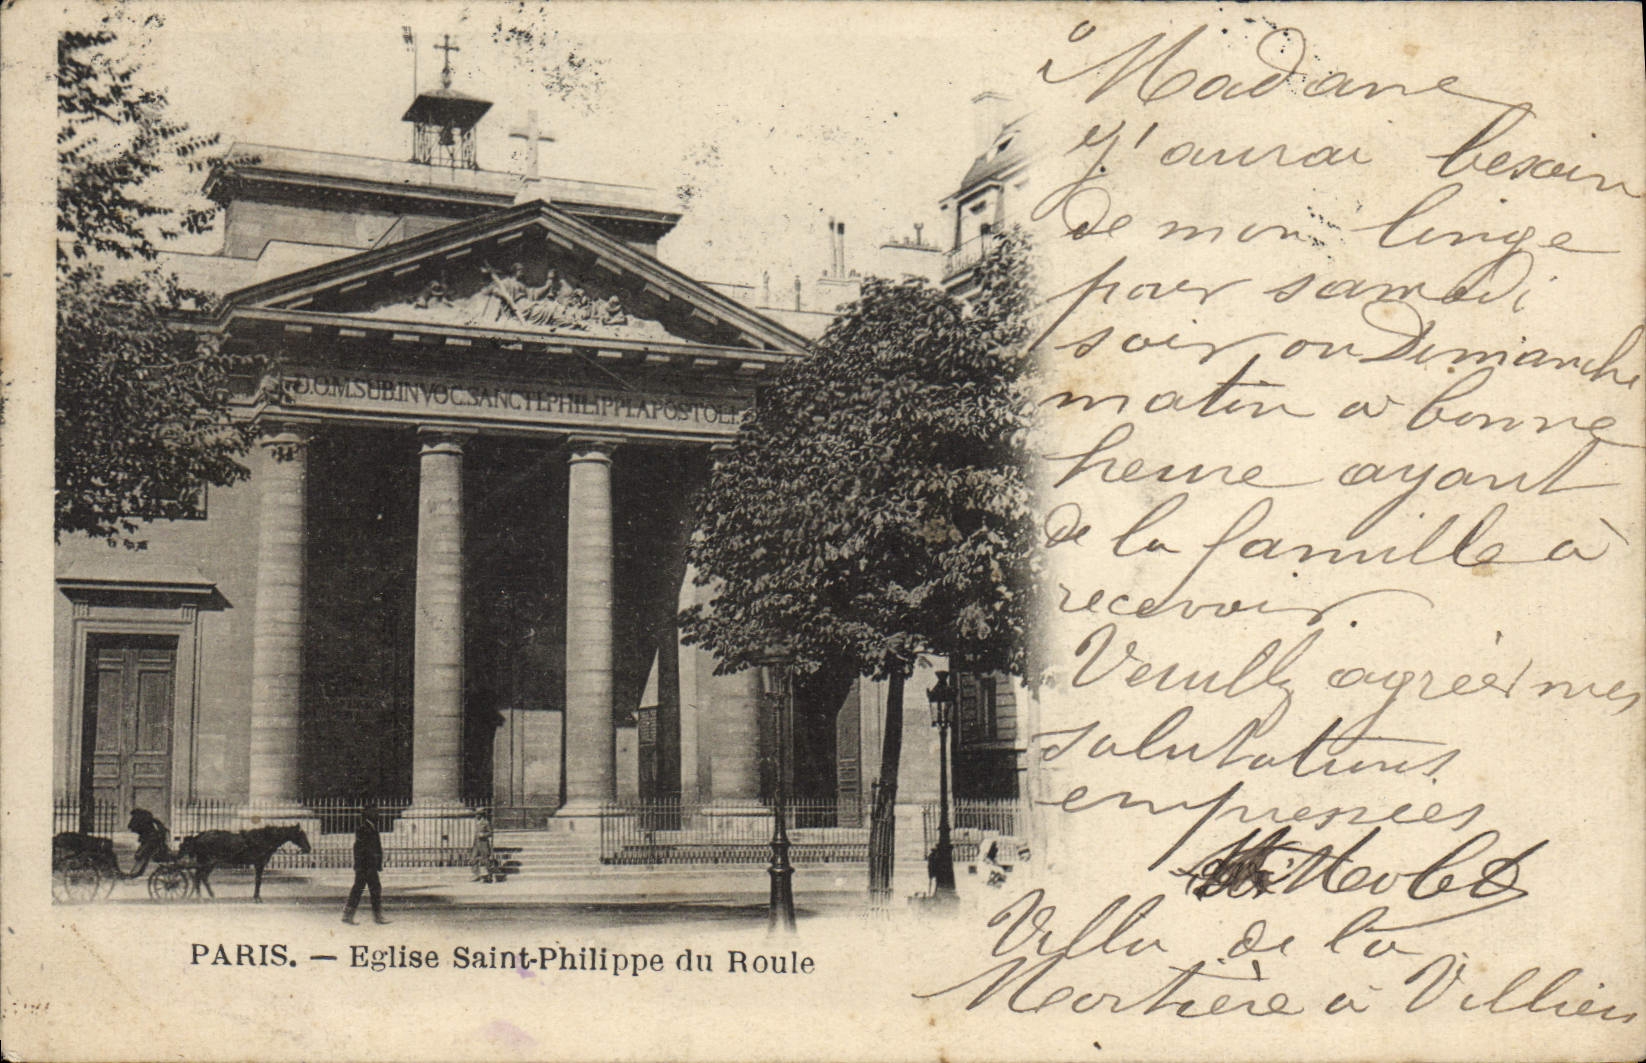 D.O.M.SUB.INVOC.SANCTI.PHILIPPI.APOSTOLI
PARIS. — Eglise Saint-Philippe du Roule
Madame
J'aurai besoin
de mon linge
pour samedi
soir ou Dimanche
matin a bonne
heure ayant
de la famille à
recevoir.
Veuillez agréer mes
salutations
empressées
Villa de la
à Villiers